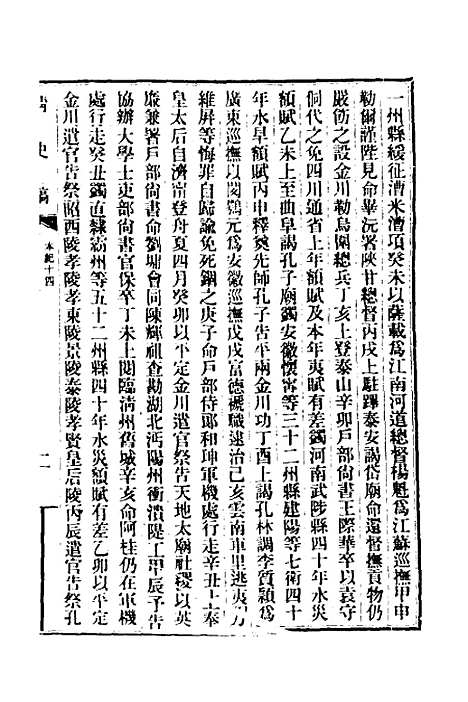 一州縣緩征漕米漕項癸未以薩載爲江南河道總督楊魁爲江蘇巡撫甲申
勒爾謹陛見命畢沅署陝甘總督丙戌上駐蹕泰安謁岱廟命還督撫貢物仍
嚴飭之設金川勒烏圍總兵丁亥上登泰山辛卯戶部尚書王際華卒以袁守
侗代之免四川通省上年額賦及本年夷賦有差蠲河南武陟縣四十年水災
額賦乙未上至曲阜謁孔子廟蠲安徽懷甯等三十二州縣建陽等七衛四十
年水旱額賦丙申釋奠先師孔子告平兩金川功丁酉上謁孔林調李質穎爲
廣東巡撫以閔鶚元爲安徽巡撫戊戌富德褫職逮治己亥雲南車里逃夷刀
維屏等悔罪自歸論免死錮之庚子命戶部侍郎和珅軍機處行走辛丑上奉
皇太后自濟甯登舟夏四月癸卯以平定金川遣官祭告天地太廟社稷以英
廉兼署戶部尚書命劉墉會同陳輝祖查勘湖北沔陽州衝潰隄工甲辰予告
協辦大學士吏部尚書官保卒丁未上閱臨清州舊城辛亥命阿桂仍在軍機
處行走癸丑蠲直隸霸州等五十二州縣四十年水災額賦有差乙卯以平定
金川遣官告祭昭西陵孝陵孝東陵景陵泰陵孝賢皇后陵丙辰遣官告祭孔
清史稿
本紀十四
二